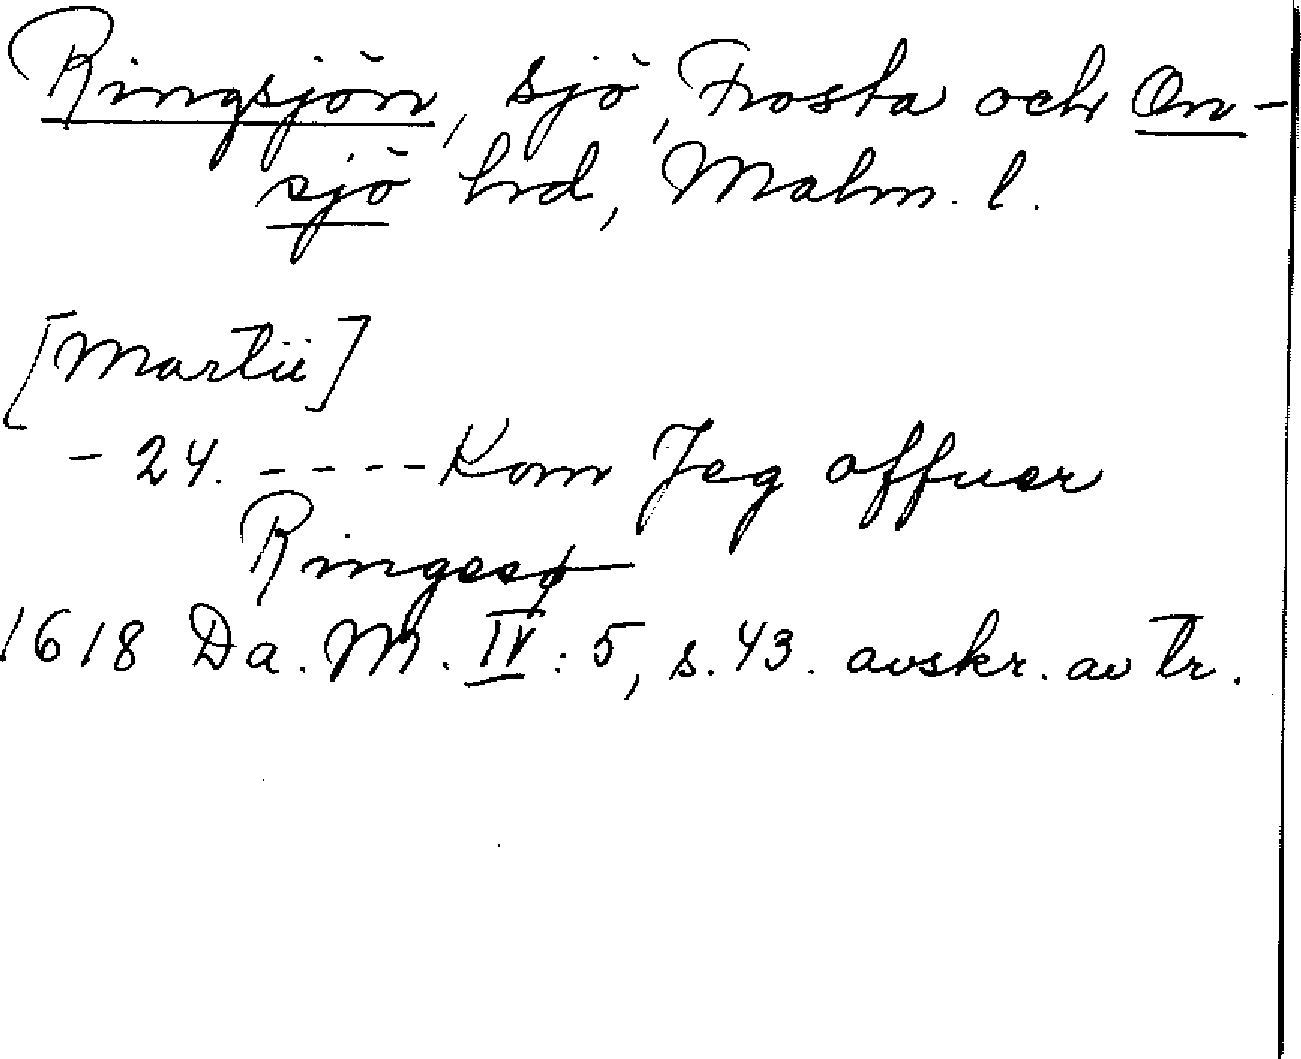 Ringsjön, sjö, Frosta och On-
sjö hrd, Malm. l.
[Martii]
- 24. - - - - Kom Jeg offuer
Ringesø
1618 Da. M. IV: 5, s. 43. avskr. av tr.